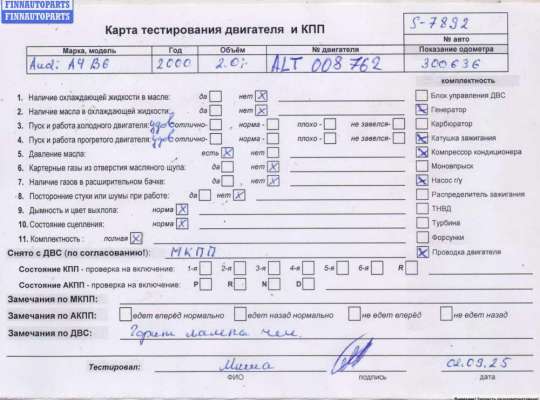 FINNAUTOPARTS
FINNAUTOPARTS
Карта тестирования двигателя и КПП
S-7892
№ авто
Марка, модель Год Объём № двигателя Показание одометра
Audi A4 B6 2000 2.0i ALT 008 762 300636
комплектность
1. Наличие охлаждающей жидкости в масле: да нет
2. Наличие масла в охлаждающей жидкости: да нет
3. Пуск и работа холодного двигателя: удов отлично- норма - плохо - не завелся-
4. Пуск и работа прогретого двигателя: удов отлично- норма - плохо - не завелся-
5. Давление масла: есть нет
6. Картерные газы из отверстия масляного щупа: да нет
7. Наличие газов в расширительном бачке: да нет
8. Посторонние стуки или шумы при работе: да нет
9. Дымность и цвет выхлопа: норма
10. Состояние сцепления: норма
11. Комплектность : полная
Блок управления ДВС
Генератор
Карбюратор
Катушка зажигания
Компрессор кондиционера
Моновпрыск
Насос г/у
Распределитель зажигания
ТНВД
Турбина
Форсунки
Проводка двигателя
Снято с ДВС (по согласованию!): МКПП
Состояние КПП - проверка на включение: 1-я 2-я 3-я 4-я 5-я 6-я R
Состояние АКПП - проверка на включение: P R N D
Замечания по МКПП:
Замечания по АКПП: едет вперёд нормально едет назад нормально не едет вперёд не едет назад
Замечания по ДВС: Горит лампа чек.
Тестировал: Миша 02.09.25
ФИО подпись дата